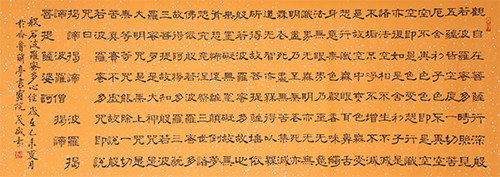 觀自在菩薩行深般
若波羅蜜多時照見
五蘊皆空度一切苦
厄舍利子色不異空
空不異色色即是空
空即是色受想行識
亦復如是舍利子是
諸法空相不生不滅
不垢不淨不增不減
是故空中無色無受
想行識無眼耳鼻舌
身意無色聲香味觸
法無眼界乃至無意
識界無無明亦無無
明盡乃至無老死亦
無老死盡無苦集滅
道無智亦無得以無
所得故菩提薩埵依
般若波羅蜜多故心
無罣礙無罣礙故無
有恐怖遠離顛倒夢
想究竟涅槃三世諸
佛依般若波羅蜜多
故得阿耨多羅三藐
三菩提故知般若波
羅蜜多是大神咒是
大明咒是無上咒是
無等等咒能除一切
苦真實不虛故說般
若波羅蜜多咒即說
咒曰
揭諦揭諦波羅揭
諦波羅僧揭諦
菩提薩婆訶
般若波羅蜜多心經歲在乙未夏月